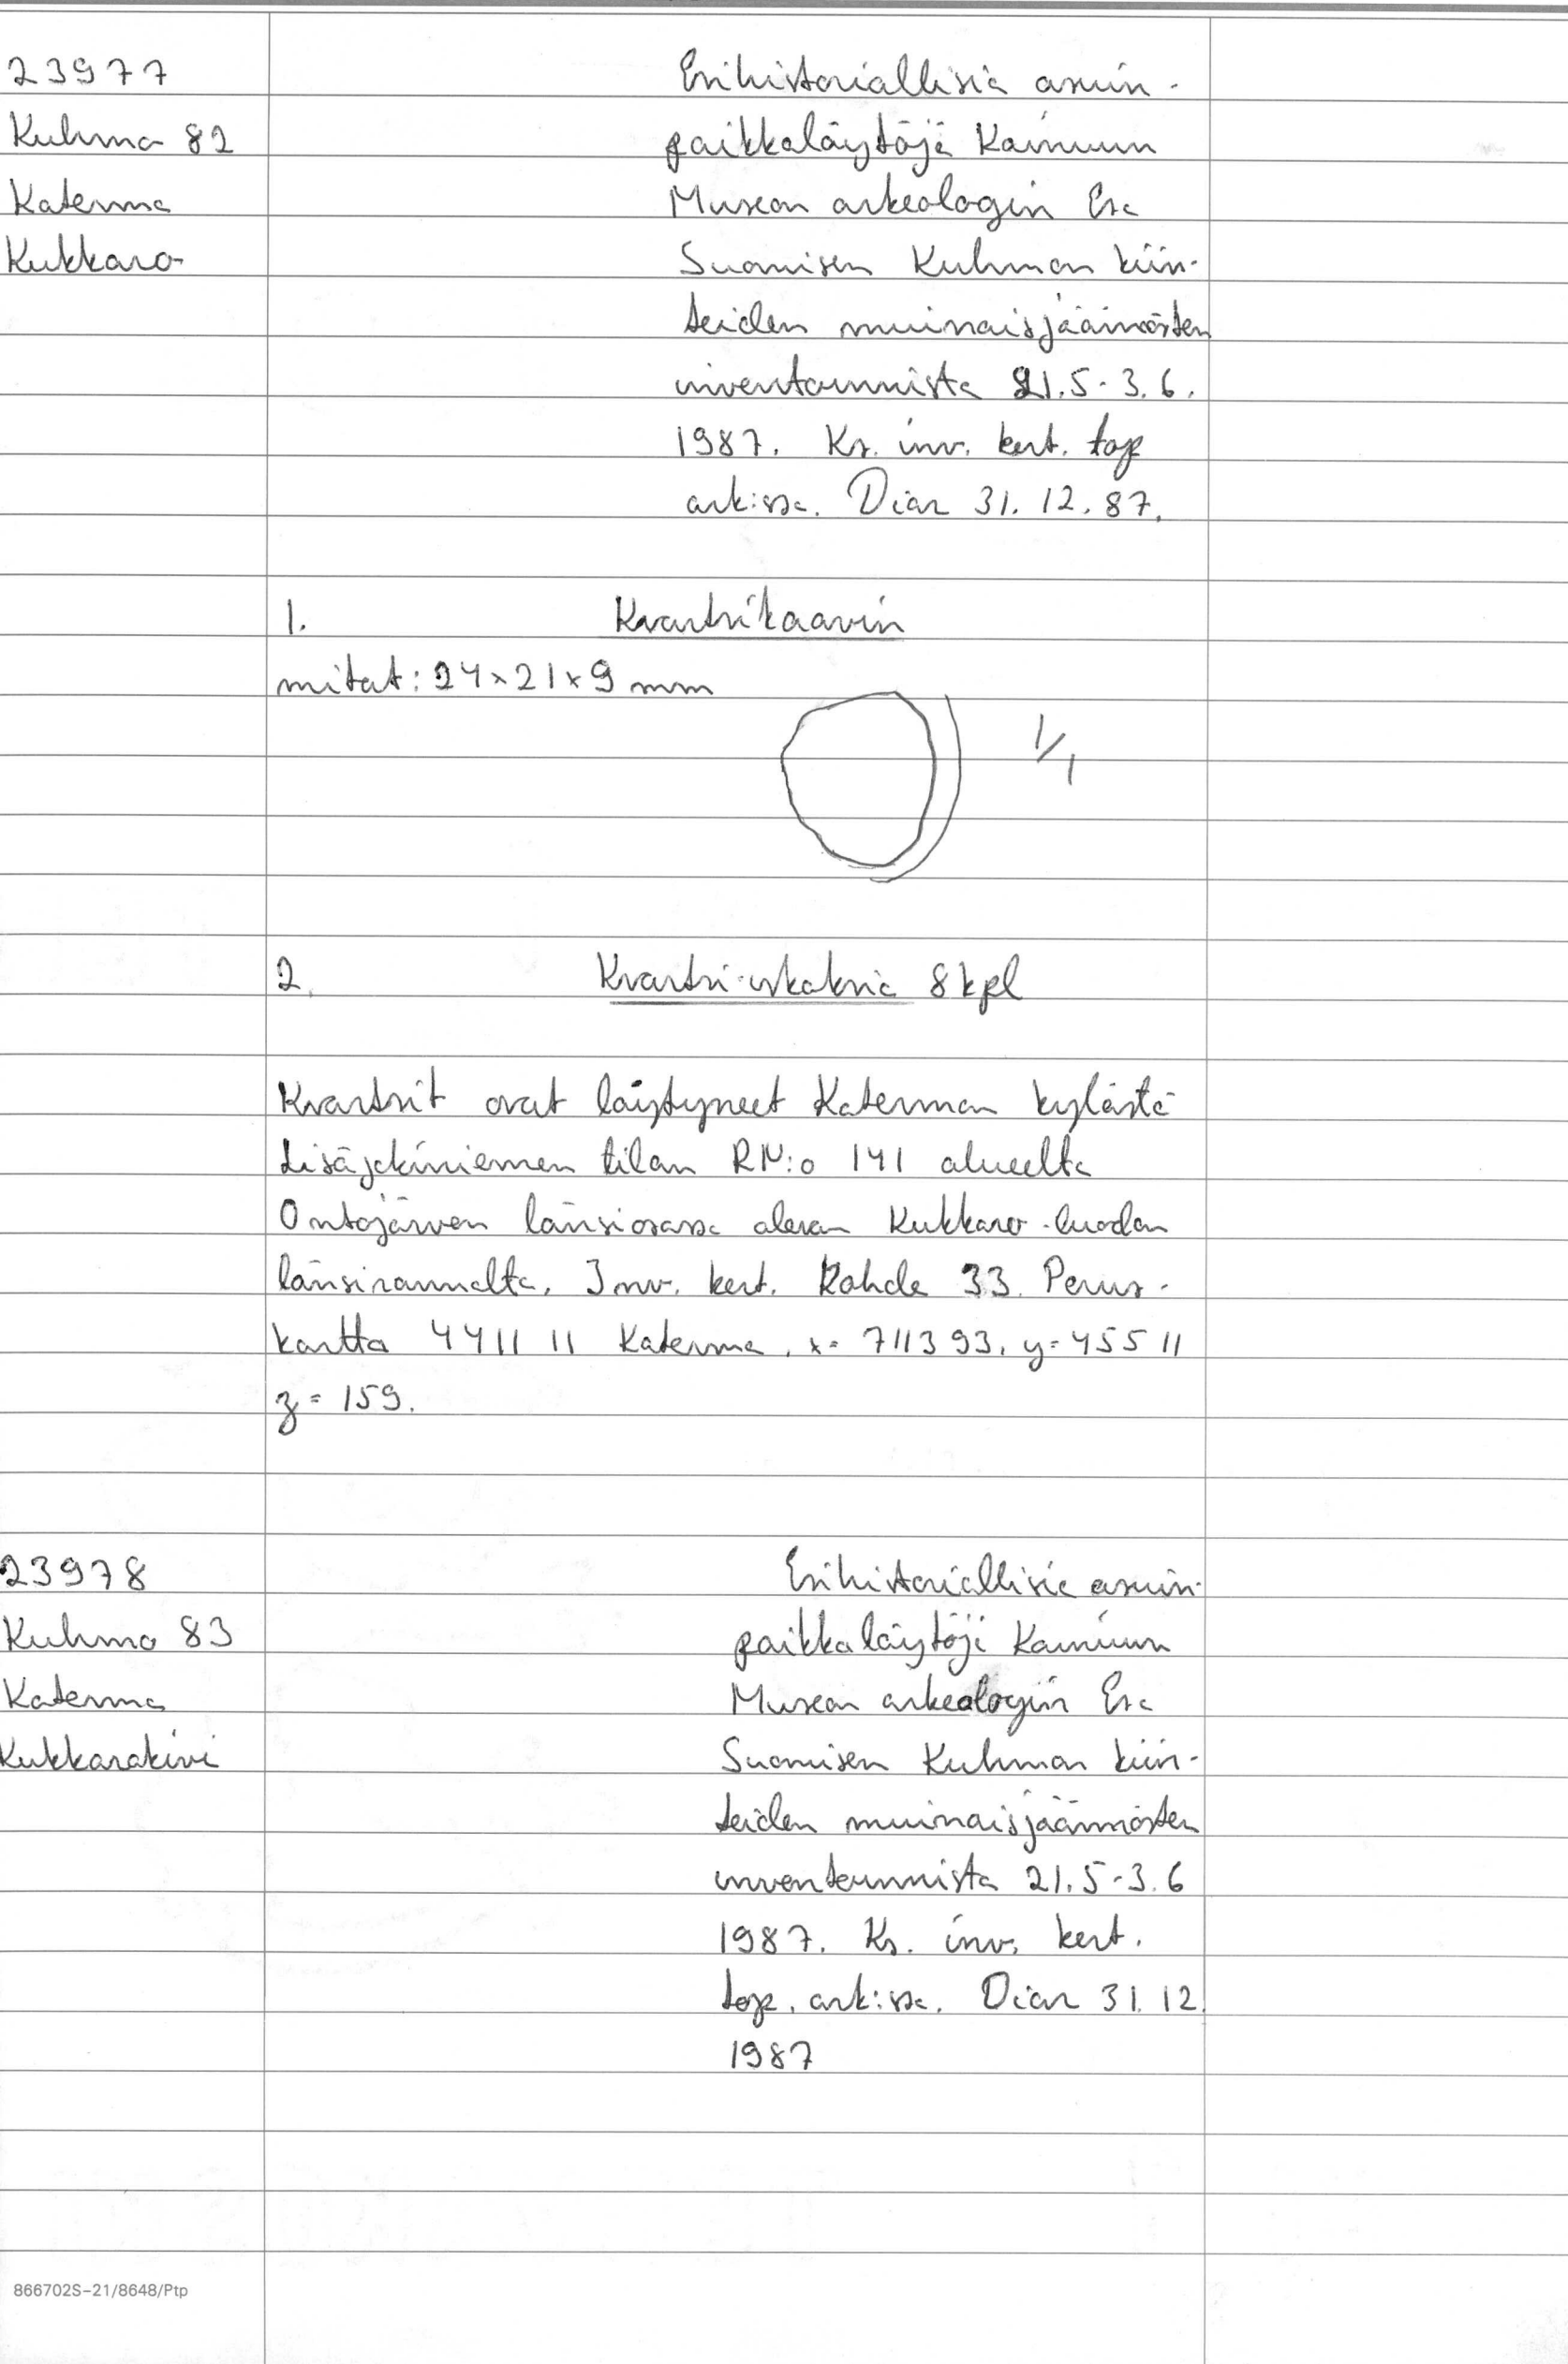 23977
Kuhmo 82
Katerma
Kukkaro
Esihistoriallisia asuin-
paikkalöytöjä Kainuun
Museon arkeologin Esa
Suomisen Kuhmon kiin-
teiden muinaisjäännösten
inventoinnista 21.5-3.6.
1987. Ks. inv. kert. top
ark:ssa. Diar 31.12.87.
1. Kvartsikaavin
mitat: 24x21x9 mm
1/1
2. Kvartsi-iskoksia 8 kpl
Kvartsit ovat löytyneet Katerman kylästä
Lisäjokiniemen tilan RN:o 141 alueelta
Ontojärven länsiosassa olevan Kukkaro-luodon
länsirannalta. Inv. kert. Kohde 33. Perus-
kartta 4411 11 Katerma. x= 711393. y=455 11
z= 159.
23978
Kuhmo 83
Katerma
Kukkarokivi
Esihistoriallisia asuin-
paikkalöytöjä Kainuun
Museon arkeologin Esa
Suomisen Kuhmon kiin-
teiden muinaisjäännösten
inventoinnista 21.5-3.6
1987. Ks. inv. kert.
top. ark:ssa. Diar 31.12.
1987
866702S-21/8648/Ptp